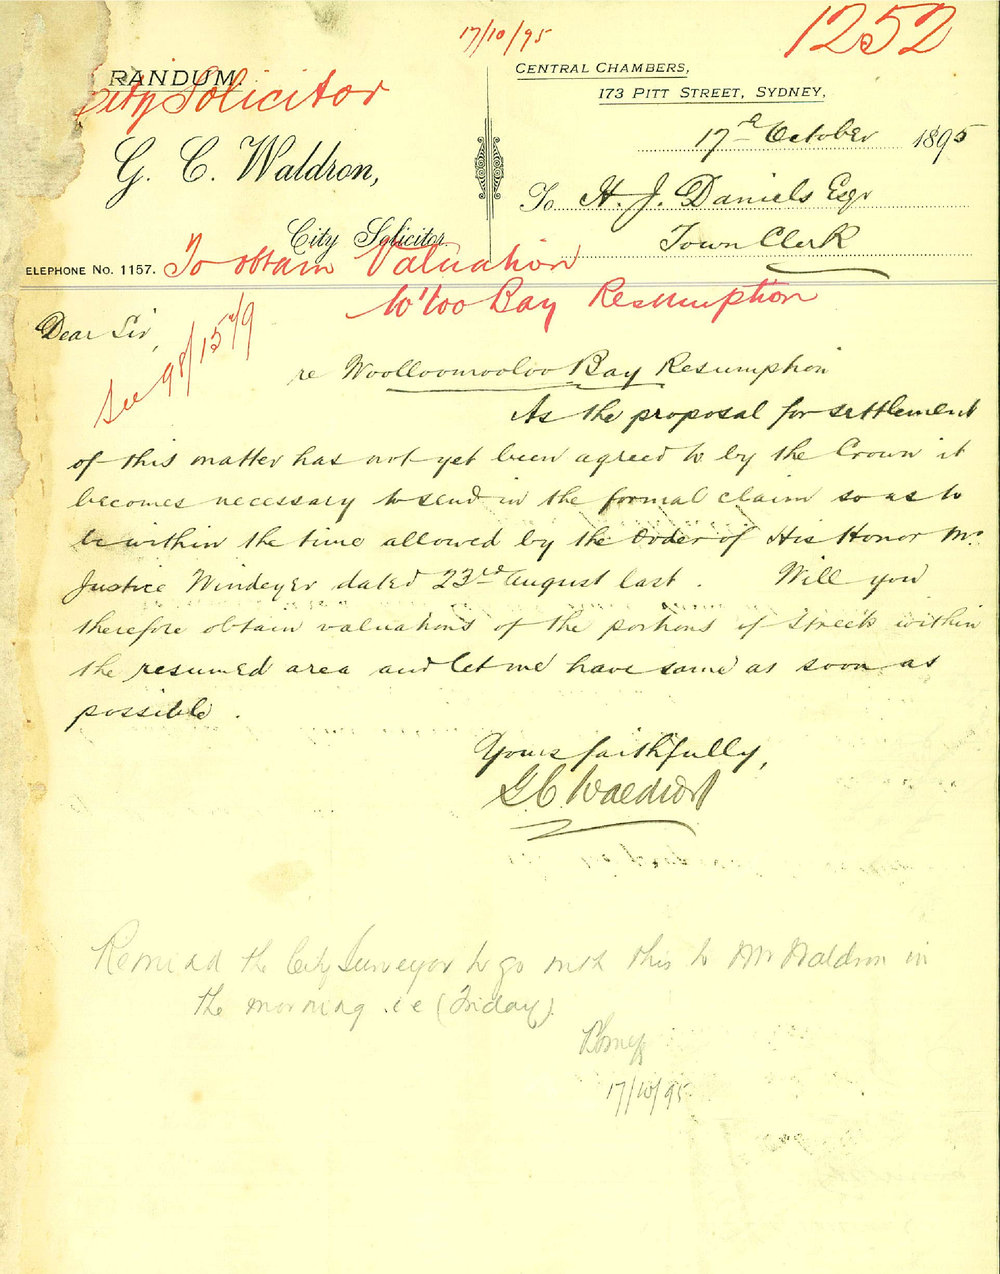 17/10/95
1252
RANDUM.
City Solicitor
CENTRAL CHAMBERS,
173 PITT STREET, SYDNEY,
17th October 1895
G. C. Waldron,
To H. J. Daniels Esqr
City Solicitor.
Town Clerk
ELEPHONE No. 1157.
To obtain Valuation
W'loo Bay Resumption
Dear Sir,
See 98/1549
re Woolloomooloo Bay Resumption
As the proposal for settlement
of this matter has not yet been agreed to by the Crown it
becomes necessary to send in the formal claim so as to
be within the time allowed by the Order of His Honor Mr
Justice Windeyer dated 23rd August last. Will you
therefore obtain valuations of the portions of Streets within
the resumed area and let me have same as soon as
possible.
Yours faithfully,
G C Waldron
Remind the City Surveyor to go with this to Mr Waldron in
the morning i.e (Friday)
17/10/95